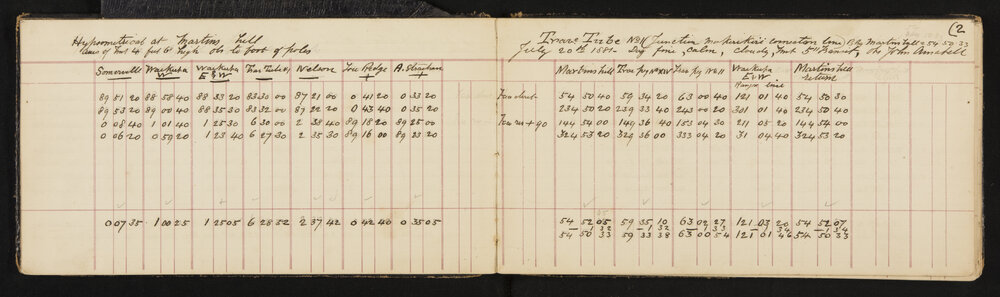 Hypsometrical at Martins hill
axis of Inst 4 feet 6" high obs to foot of poles
Somerville Waikupa W Waikupa E & W Trav Tube #1 Nelson Low Ridge + A. Strachan +
89 51 20 88 58 40 88 33 20 83 30 00 87 21 00 0 41 20 0 33 20
89 53 20 89 00 40 88 35 30 83 32 00 87 22 20 0 43 40 0 35 20
0 08 40 1 01 40 1 25 30 6 30 00 2 38 40 89 18 20 89 25 00
0 06 20 0 59 20 1 23 40 6 27 30 2 35 30 89 16 00 89 23 20
0 07 35 1 00 25 1 25 05 6 28 52 2 37 42 0 42 40 0 35 05
(2
Trav Tube No XI (Junction
line) Brg Martins hill = 54 50 33
July 20th 1881 - Day fine, calm, cloudy, Inst 5"
Martins hill Trav peg No XIV Trav peg No 11 Waikupa E & W Range line Martins hill return
Face direct 54 50 40 59 34 20 63 00 40 121 01 40 54 50 30
234 50 20 239 33 40 243 00 20 301 01 00 234 50 40
Face rev + 90 144 54 00 149 36 40 153 04 30 211 05 20 144 54 00
324 53 20 329 36 00 333 04 20 31 04 40 324 53 20
54 52 05 59 35 10 63 02 27 121 03 20 54 52 07
1 32 1 32 1 33 1 34 1 34
54 50 33 59 33 38 63 00 54 121 01 46 54 50 33